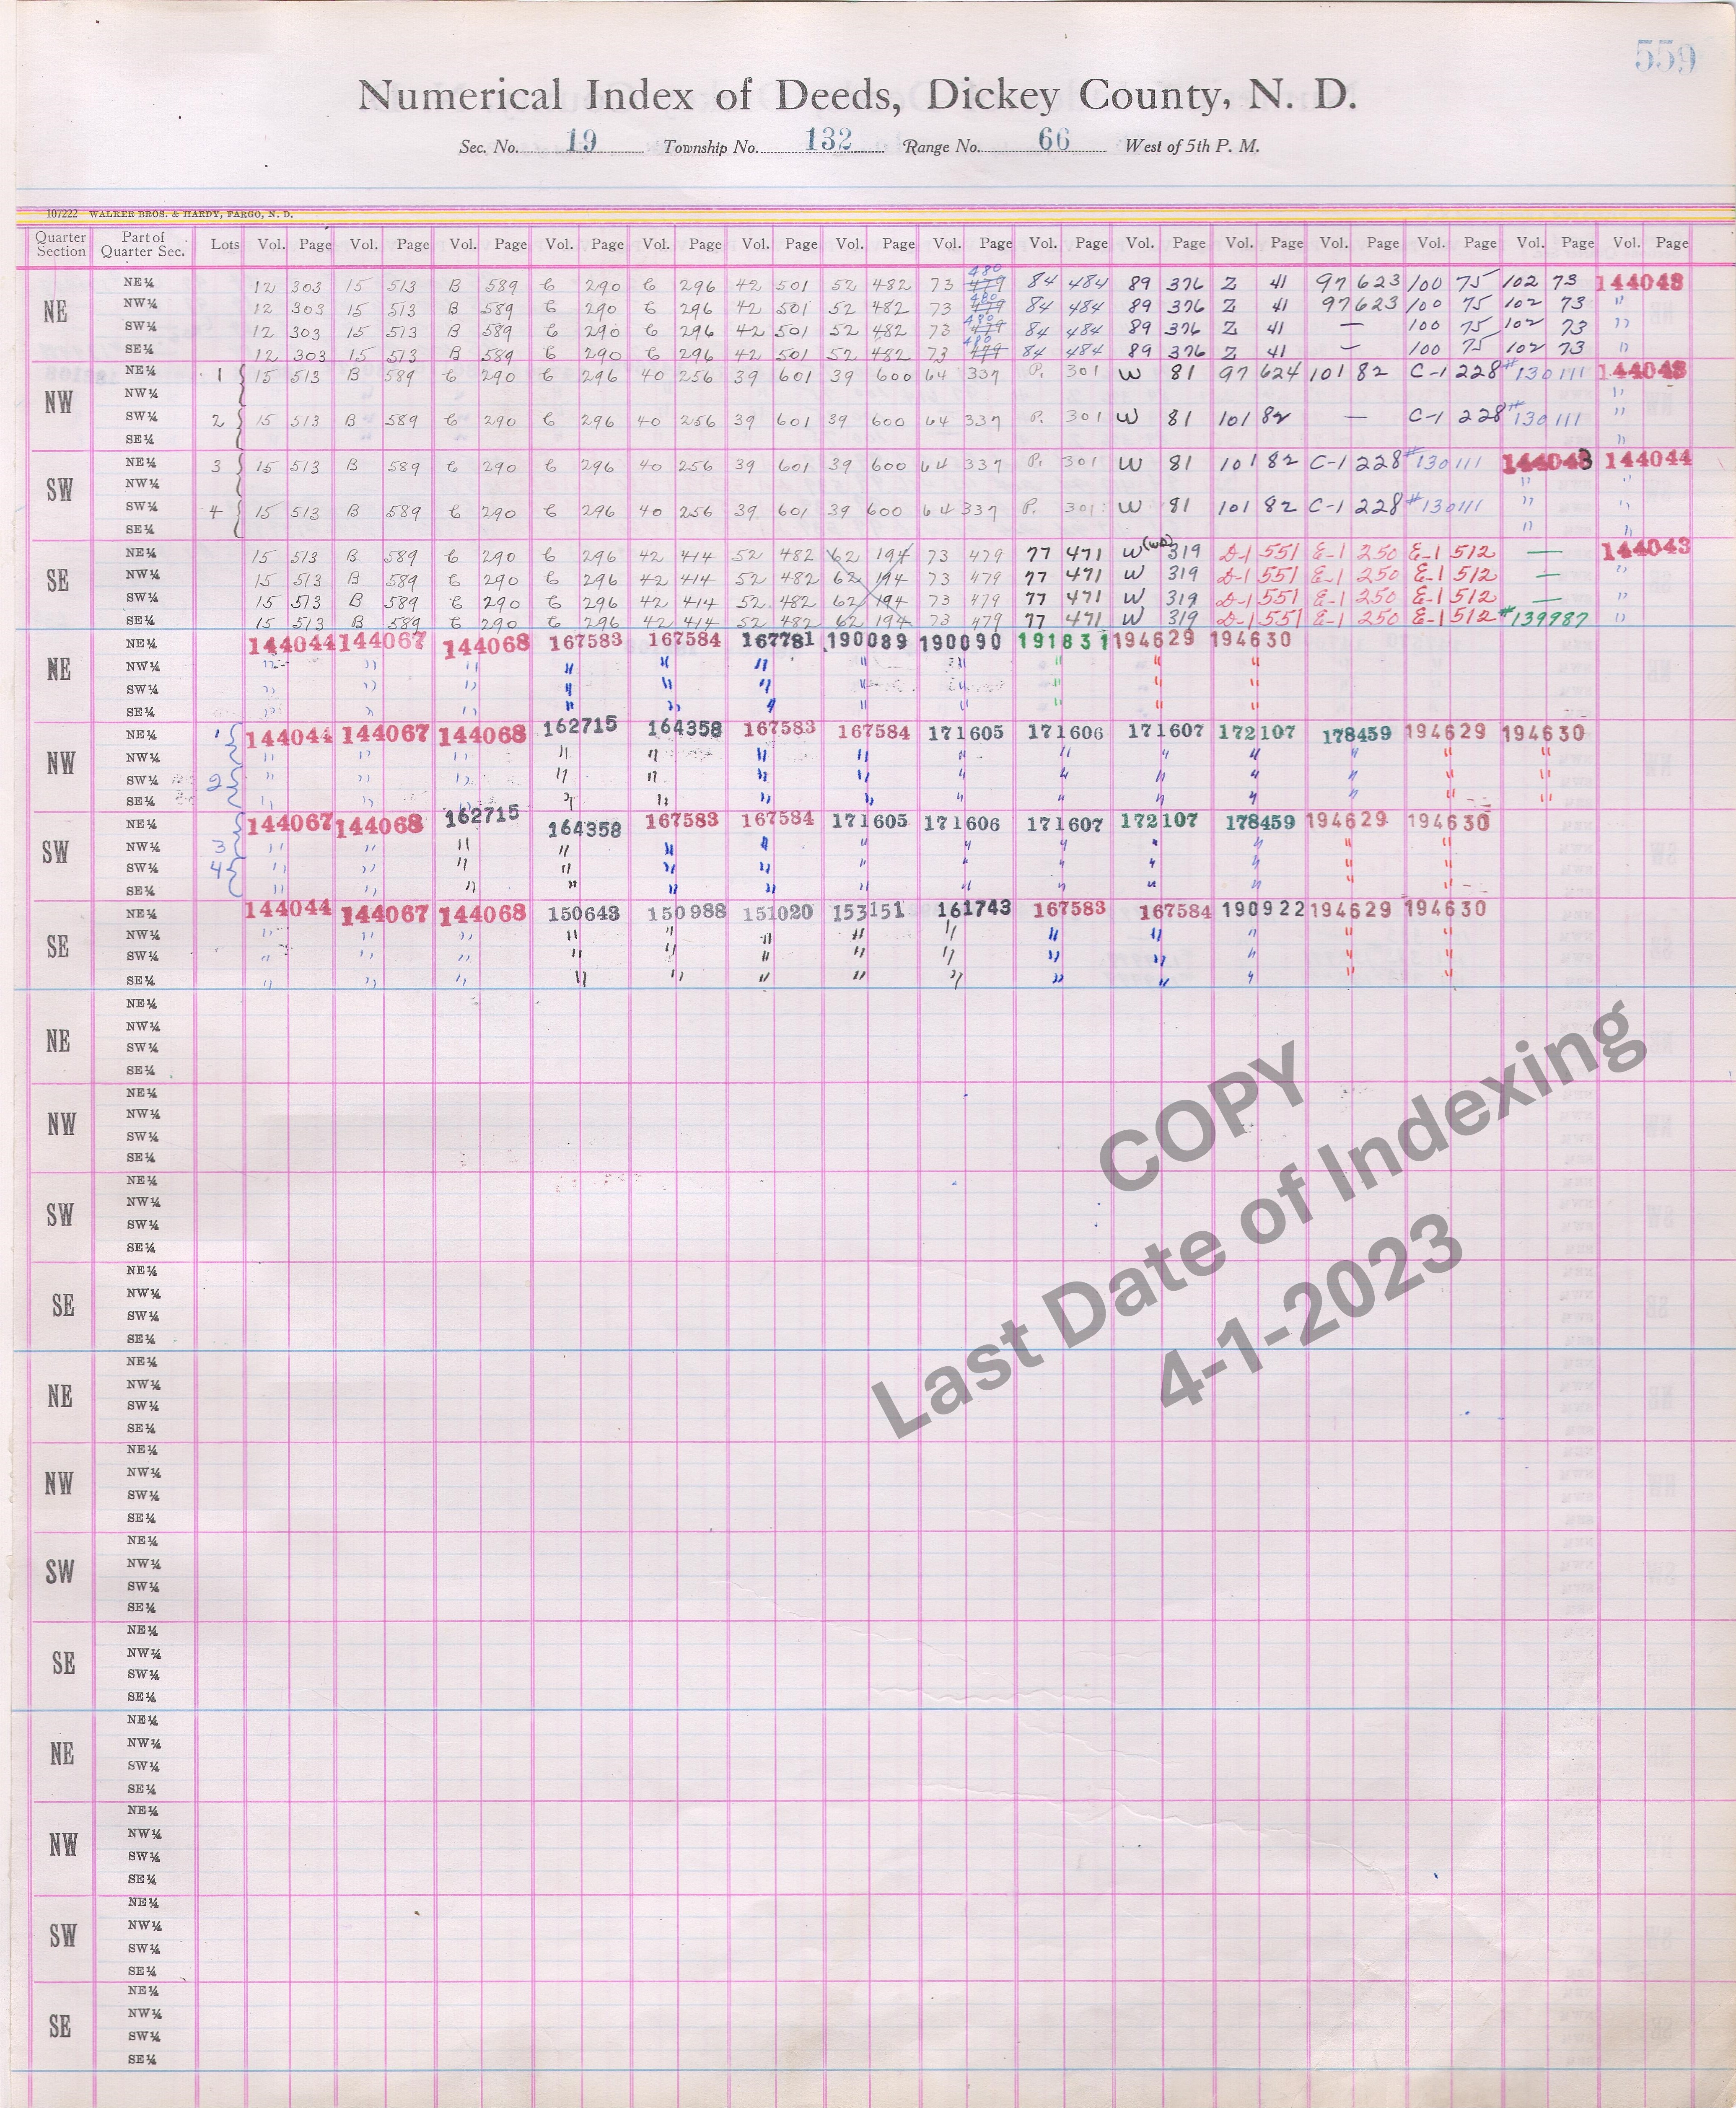 559
Numerical Index of Deeds, Dickey County, N. D.
Sec. No. 19 Township No. 132 Range No. 66 West of 5th P. M.
107222 WALKER BROS. & HARDY, FARGO, N. D.
Quarter Section Part of Quarter Sec. Lots Vol. Page Vol. Page Vol. Page Vol. Page Vol. Page Vol. Page Vol. Page Vol. Page Vol. Page Vol. Page Vol. Page Vol. Page Vol. Page Vol. Page Vol. Page
NE
NE¼ 12 303 15 513 B 589 C 290 C 296 42 501 52 482 73 479 480 84 484 89 376 Z 41 97 623 100 75 102 73 144043
NW¼ 12 303 15 513 B 589 C 290 C 296 42 501 52 482 73 479 480 84 484 89 376 Z 41 97 623 100 75 102 73 "
SW¼ 12 303 15 513 B 589 C 290 C 296 42 501 52 482 73 479 480 84 484 89 376 Z 41 — 100 75 102 73 "
SE¼ 12 303 15 513 B 589 C 290 C 296 42 501 52 482 73 479 480 84 484 89 376 Z 41 — 100 75 102 73 "
NW
NE¼ 1 15 513 B 589 C 290 C 296 40 256 39 601 39 600 64 337 P. 301 W 81 97 624 101 82 C-1 228 #130111 144043
NW¼ "
SW¼ 2 15 513 B 589 C 290 C 296 40 256 39 601 39 600 64 337 P. 301 W 81 101 82 — C-1 228 #130111 "
SE¼ "
SW
NE¼ 3 15 513 B 589 C 290 C 296 40 256 39 601 39 600 64 337 P. 301 W 81 101 82 C-1 228 #130111 144043 144044
NW¼ " "
SW¼ 4 15 513 B 589 C 290 C 296 40 256 39 601 39 600 64 337 P. 301 W 81 101 82 C-1 228 #130111 " "
SE¼ " "
SE
NE¼ 15 513 B 589 C 290 C 296 42 414 52 482 62 194 73 479 77 471 W (WD) 319 D-1 551 E-1 250 E-1 512 — 144043
NW¼ 15 513 B 589 C 290 C 296 42 414 52 482 62 194 73 479 77 471 W 319 D-1 551 E-1 250 E-1 512 — "
SW¼ 15 513 B 589 C 290 C 296 42 414 52 482 62 194 73 479 77 471 W 319 D-1 551 E-1 250 E-1 512 — "
SE¼ 15 513 B 589 C 290 C 296 42 414 52 482 62 194 73 479 77 471 W 319 D-1 551 E-1 250 E-1 512 #139987 "
NE
NE¼ 144044 144067 144068 167583 167584 167781 190089 190090 191831 194629 194630
NW¼ " " " " " " " " " " "
SW¼ " " " " " " " " " " "
SE¼ " " " " " " " " " " "
NW
NE¼ 1 144044 144067 144068 162715 164358 167583 167584 171605 171606 171607 172107 178459 194629 194630
NW¼ " " " " " " " " " " " " " "
SW¼ 2 " " " " " " " " " " " " " "
SE¼ " " " " " " " " " " " " " "
SW
NE¼ 144067 144068 162715 164358 167583 167584 171605 171606 171607 172107 178459 194629 194630
NW¼ 3 " " " " " " " " " " " " "
SW¼ 4 " " " " " " " " " " " " "
SE¼ " " " " " " " " " " " " "
SE
NE¼ 144044 144067 144068 150643 150988 151020 153151 161743 167583 167584 190922 194629 194630
NW¼ " " " " " " " " " " " " "
SW¼ " " " " " " " " " " " " "
SE¼ " " " " " " " " " " " " "
NE
NE¼
NW¼
SW¼
SE¼
NW
NE¼
NW¼
SW¼
SE¼
SW
NE¼
NW¼
SW¼
SE¼
SE
NE¼
NW¼
SW¼
SE¼
NE
NE¼
NW¼
SW¼
SE¼
NW
NE¼
NW¼
SW¼
SE¼
SW
NE¼
NW¼
SW¼
SE¼
SE
NE¼
NW¼
SW¼
SE¼
NE
NE¼
NW¼
SW¼
SE¼
NW
NE¼
NW¼
SW¼
SE¼
SW
NE¼
NW¼
SW¼
SE¼
SE
NE¼
NW¼
SW¼
SE¼
COPY
Last Date of Indexing
4-1-2023